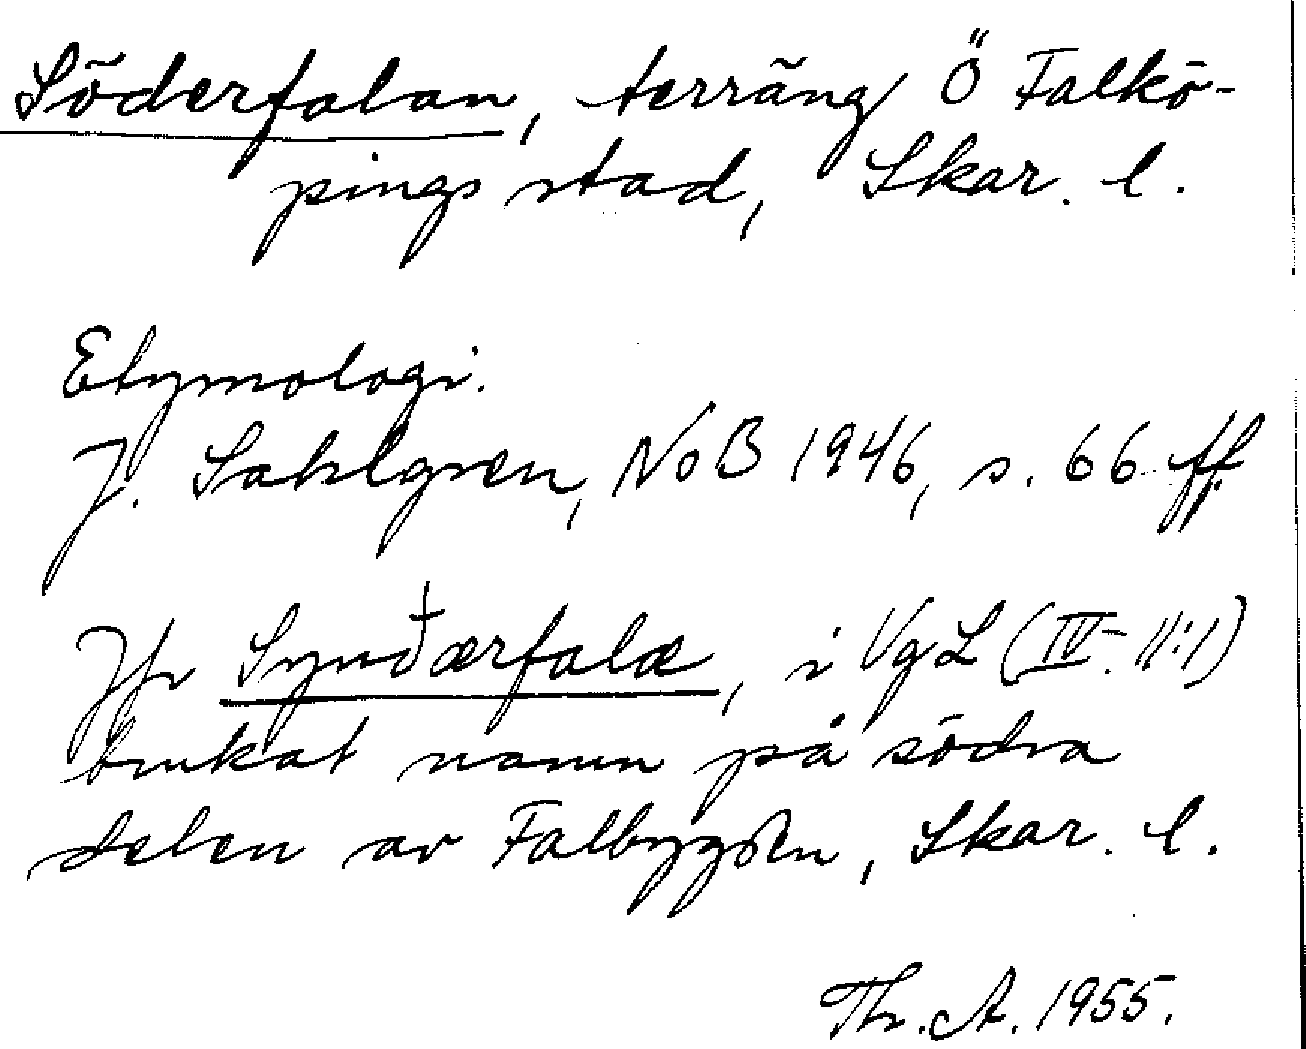 Söderfalan, terräng Ö Falkö-
pings stad, Skar. l.
Etymologi.
J. Sahlgren, NoB 1946, s. 66 ff.
Jfr Synðærfalæ, i VgL (IV. 11:1)
brukat namn på södra
delen av Falbygden, Skar. l.
Th. A. 1955.